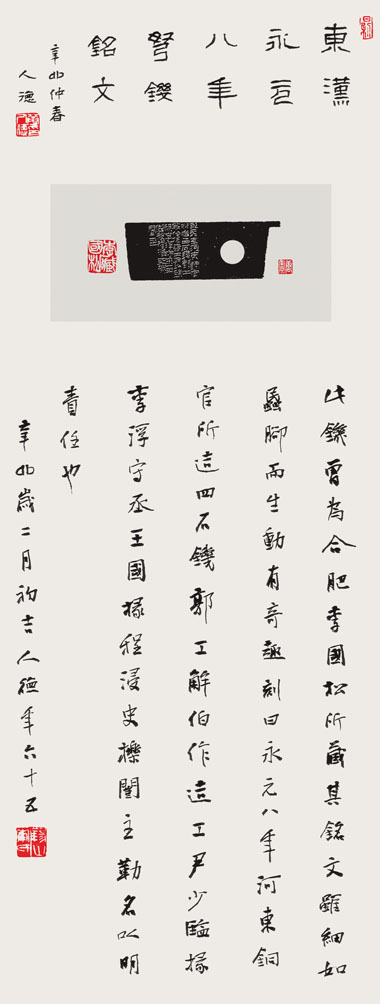 東漢
永元
八年
弩鐖
銘文
辛卯仲春
人德
此鐖曾為合肥李國松所藏其銘文雖細如
蟲腳而生動有奇趣刻曰永元八年河東銅
官所造四石鐖郭工解伯作造工尹少監掾
李浮守丞王國掾程浸史主勒名以明
責任也
辛卯歲二月初吉人德年六十五